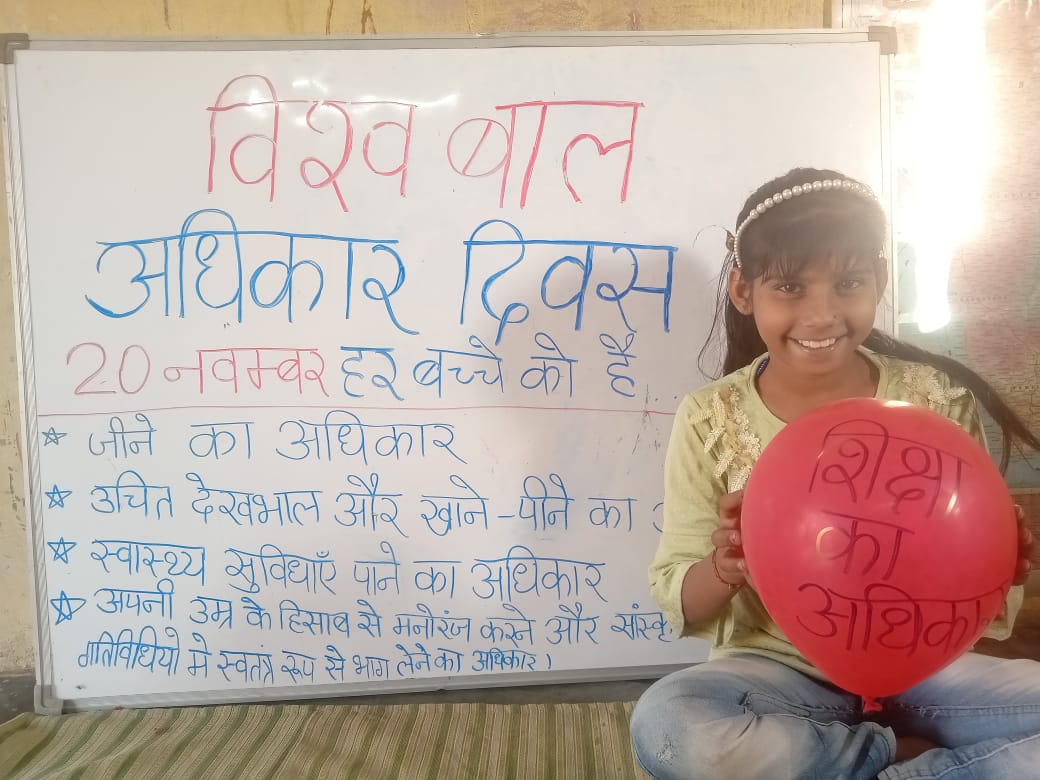 विश्व बाल
अधिकार दिवस
20 नवम्बर हर बच्चे को है...
☆ जीने का अधिकार
☆ उचित देखभाल और खाने-पीने का
☆ स्वास्थ्य सुविधाएँ पाने का अधिकार
☆ अपनी उम्र के हिसाब से मनोरंज करने और
गतिविधियो मे स्वतंत्र रूप से भाग लेने का अधिकार।
शिक्षा
का
अधिकार